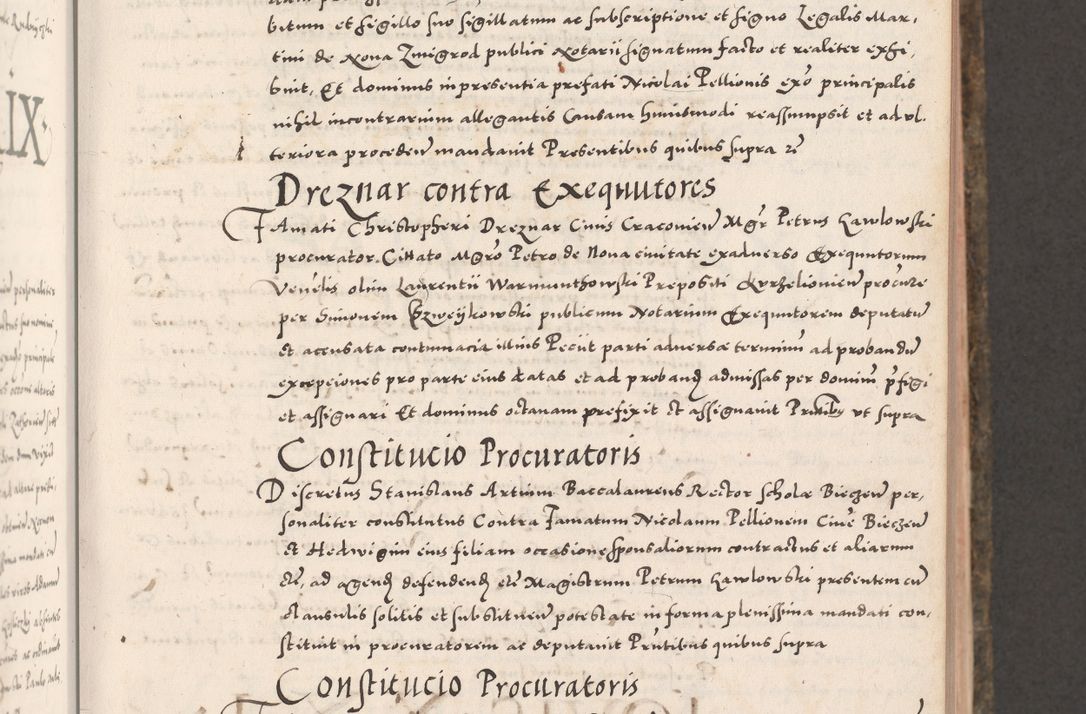 bitum et sigillo suo sigillatum ac subscriptione et signo Legalis Mar,
tini de Nova Zmigrod publici Notarii signatum facto et realiter exhi,
buit, Et dominus in presentia prefati Nicolai Pellionis exō principalis
nihil in contrarium allegantis Causam huiusmodi reassumpsit et ad ul,
teriora procedeñ mandavit Presentibus quibus supra
Dreznar contra Exequutores
Famati Christopheri Dreznar Civis Cracovieñ Mgr̄ Petrus Gawlowski
procurator. Citato Mgrō Petro de Nova civitate ex adverso Exequutorum
Venēlis olim Laurentii Warmunthowski Prepositi Kurzelovieñ procure
per Simonem Szweykowski publicum Notarium Exequutorem deputatū
Et accusata contumacia illius Peciit parti adversæ terminū ad probandū
excepciones pro parte eius datas et ad proband admissas per dominū p̄figi
et assignari Et dominus octavam prefixit et assignavit Prntibus ut supra
Constitucio Procuratoris
Discretus Stanislaus Artium Baccalaureus Rector scholæ Bieczeñ per,
sonaliter constitutus Contra famatum Nicolaum Pellionem Civē Bieczeñ
Et Hedwigim eius filiam occasione sponsaliorum contractus et aliarum
etc, ad agend defendend etc Magistrum Petrum Gawlowski presentem cū
clausulis solitis et substitueñ potestate in forma plenissima mandati con,
stituit in procuratorem ac deputavit Prntibus quibus supra
Constitucio Procuratoris